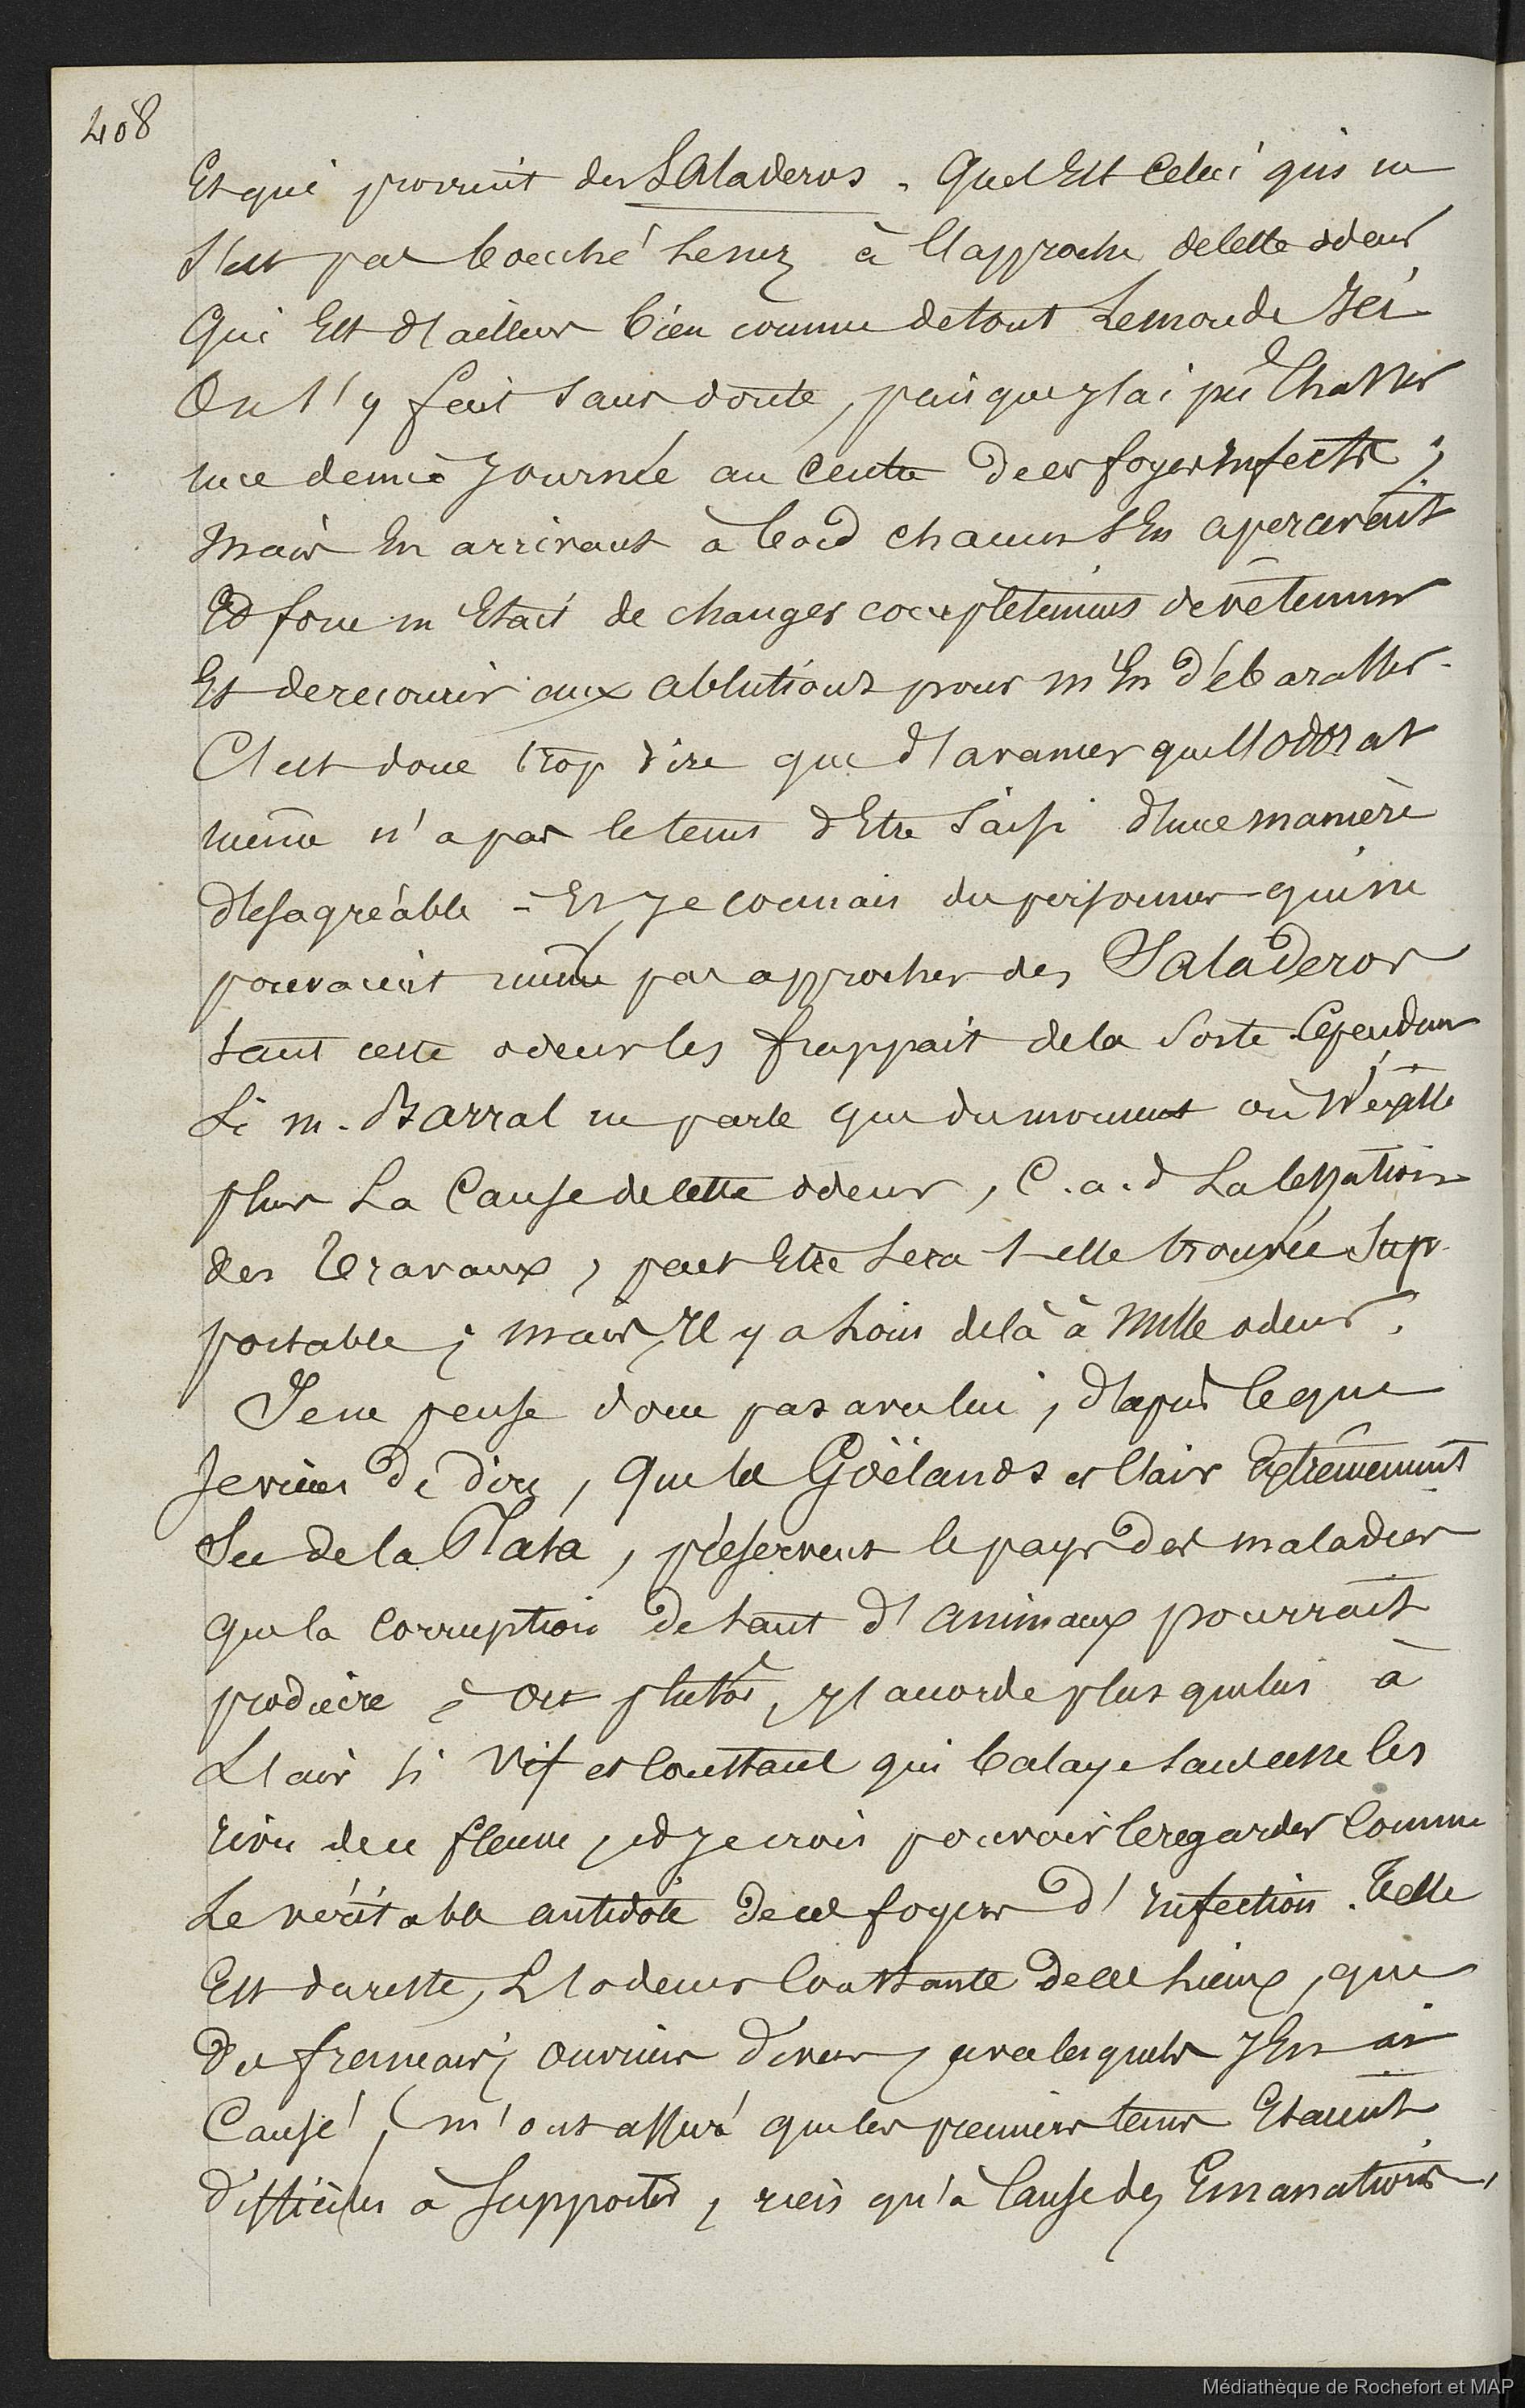 408
Et qui provient des Saladeros. Quel Est Celui qui ne
S'est pas bouché Lenez à l'approche decette odeur
Qui Est d'ailleurs bien connue detout Lemonde Ici
On s'y fait sans doute, puisque j'ai pu Chasser
une demie Journée au Centre deces foyers Infects;
Mais En arrivant à bord chacun s'En apercevait
Et force m'Etait de changer complètement devêtemens
Et derecourir aux ablutions pour m'En débarasser.
C'est donc trop dire que d'avancer quel'odorat
même n'a pas letems d'Etre Saisi d'unemanière
désagréable - Et je connais despersonnes quine
pouvaient même pas approcher des Saladeros
tant cette odeur les frappait dela Sorte. Cependant
Si m. Barral ne parle que dumoment où N'éxiste
plus La Cause decette odeur, C.a.d Lacessation
des travaux, peut Etre Sera t-elle trouvée Sup-
portable; mais, Il y a Loin delà à Nulle odeur.
Jene pense donc pas aveclui, d'après ceque
Jeviens de dire, Queles Goëlands et l'air Extrêmement
Sec dela Plata, préservent lepays des maladies
quela corruption detant d'animaux pourrait
produire; ou plutôt, j'accorde plus quelui à
L'air si Vif et Constant qui balaye sanscesse les
rives dece fleuve, et je crois pouvoir leregarder Comme
Levéritable antidote deces foyers d'Infection. Telle
Est dureste, L'odeur Constante deces Lieux, que
Des francais, ouvriers divers, aveclesquels j'En ai
Causé, m'ont assuré queles premiers tems Etaient
difficiles à Supporter, rien qu'à Causedes Emanations,
Médiathèque de Rochefort et MAP